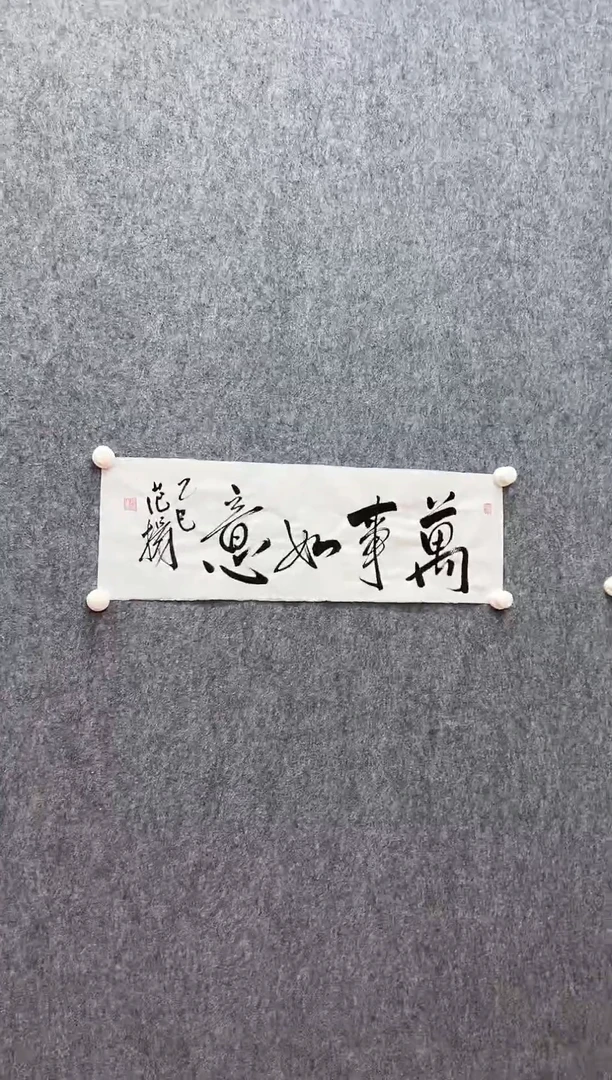 萬事如意
乙巳
范揚